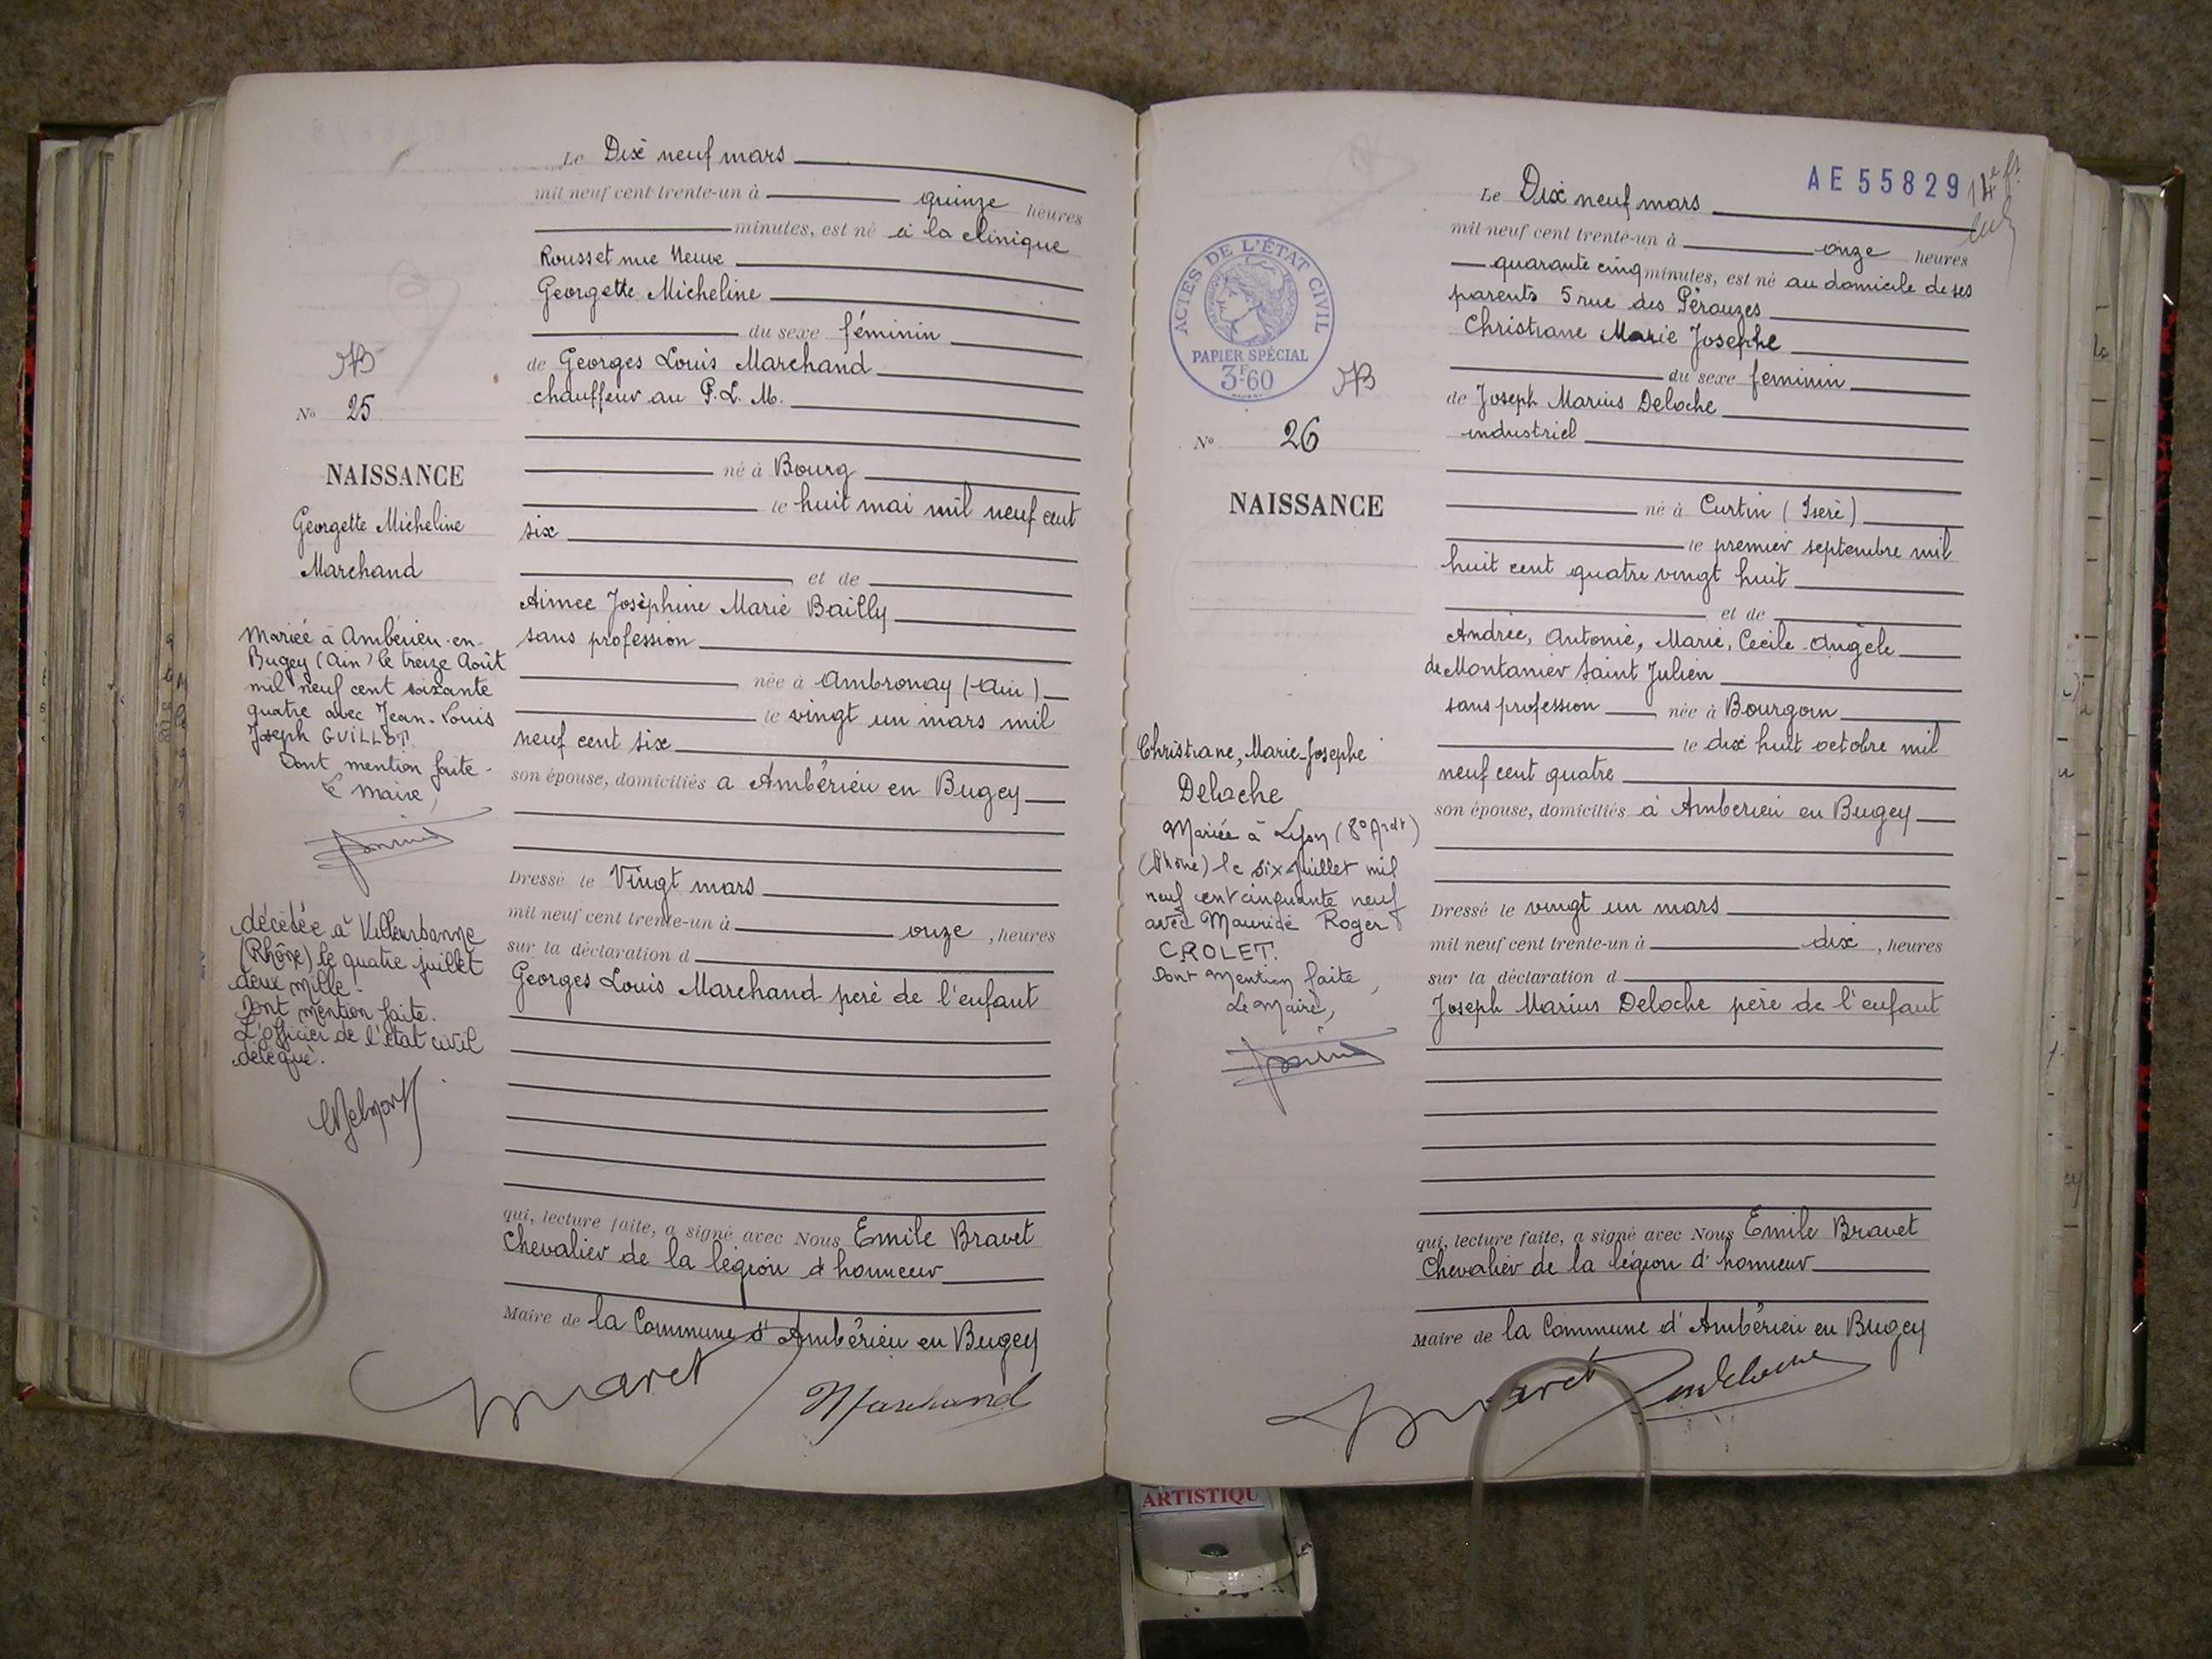 Le Dix neuf mars
mil neuf cent trente-un à quinze heures
minutes, est né à la clinique
Rousset rue Neuve
Georgette Micheline
du sexe féminin
de Georges Louis Marchand
chauffeur au P. L. M.
né à Bourg
le huit mai mil neuf cent
six
et de
Aimee Joséphine Marie Bailly
sans profession
née à Ambronay (Ain)
le vingt un mars mil
neuf cent six
son épouse, domiciliés a Ambérieu en Bugey
Dressé le Vingt mars
mil neuf cent trente-un à onze, heures
sur la déclaration d
Georges Louis Marchand père de l'enfant
qui, lecture faite, a signé avec Nous Emile Bravet
Chevalier de la légion d'honneur
Maire de la Commune d'Ambérieu en Bugey
Marchand
No 25
NAISSANCE
Georgette Micheline
Marchand
Mariée à Ambérieu-en-
Bugey (Ain) le treize Août
mil neuf cent soixante
quatre avec Jean-Louis
Joseph GUILLOT.
Dont mention faite-
Le Maire,
décédée à Villeurbanne
(Rhône) le quatre juillet
deux mille.
Dont mention faite.
L'officier de l'état civil
délégué.
AE 55829
Le Dix neuf mars
mil neuf cent trente-un à onze heures
quarante cinq minutes, est né au domicile de ses
parents 5 rue des Pérouzes
Christiane Marie Josephe
du sexe feminin
de Joseph Marius Deloche
industriel
né à Curtin (Isère)
le premier septembre mil
huit cent quatre vingt huit
et de
Andrée, Antonie, Marie, Cecile Angèle
de Montanier Saint Julien
sans profession née à Bourgoin
le dix huit octobre mil
neuf cent quatre
son épouse, domiciliés à Amberieu en Bugey
Dressé le vingt un mars
mil neuf cent trente-un à dix, heures
sur la déclaration d
Joseph Marius Deloche père de l'enfant
qui, lecture faite, a signé avec Nous Emile Bravet
Chevalier de la légion d'honneur
Maire de la Commune d'Ambérieu en Bugey
ACTES DE L'ÉTAT CIVIL
PAPIER SPÉCIAL
3F60
No 26
NAISSANCE
Christiane, Marie-Josephe
Deloche
Mariée à Lyon (8e Ardt)
(Rhône) le six juillet mil
neuf cent cinquante neuf
avec Maurice Roger
CROLET.
Dont Mention faite,
Le Maire,
ARTISTIQU